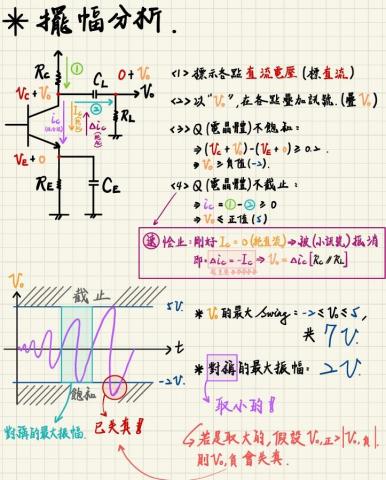 ＊擺幅分析.
Rc
①
CL
0+Vo
Vc+Vo
Vo
ic
②
Ic
Δic
RL
VE+0
RE
CE
<1> 標示各點直流電壓 (標直流)
<2> 以"Vo", 在各點疊加訊號. (疊Vo)
<3> Q (電晶體) 不飽和:
⇒ (Vc+Vo)-(VE+0) ≥ 0.2.
⇒ Vo ≥ 負值(-2).
<4> Q (電晶體) 不截止:
⇒ ic = ①-② ≥ 0
⇒ Vo ≤ 正值(5)
速 恰止: 剛好 Ic = 0 (純直流) ⇒ 被 (小訊號) 抵消
即: Δic = -Ic ⇒ Vo = Δic[Rc∥RL]
Vo
截止
5V.
t
-2V.
飽和
對稱的最大振幅.
已失真!
＊ Vo的最大 Swing: -2 ≤ Vo ≤ 5,
共 7V.
＊ 對稱的最大振幅: 2V.
取小的!
若是取大的, 假設 Vo,正>|Vo,負|.
則 Vo,負會失真.